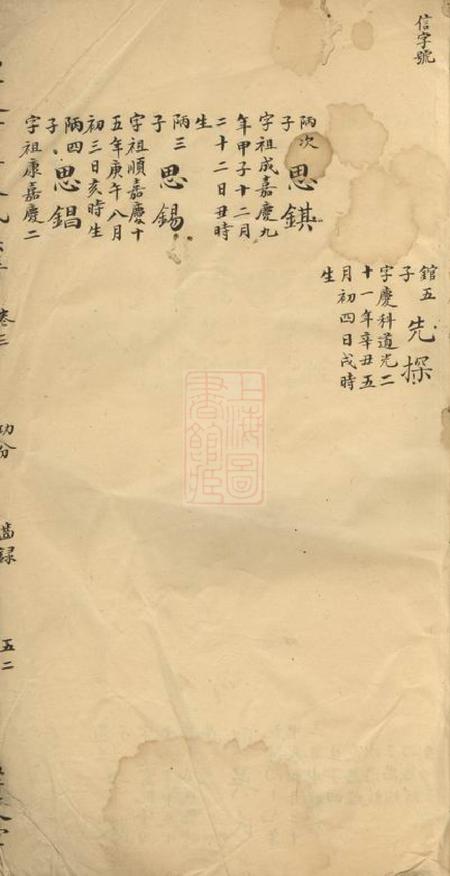 信字號
錧五子 先探
字慶科道光二
十一年辛丑五
月初四日戌時
生
陃次子 思錤
字祖成嘉慶九
年甲子十二月
二十二日丑時
生
陃三子 思錫
字祖順嘉慶十
五年庚午八月
初三日亥時生
陃四子 思錩
字祖康嘉慶二
卷三
齒録
五二
上海圖書館藏